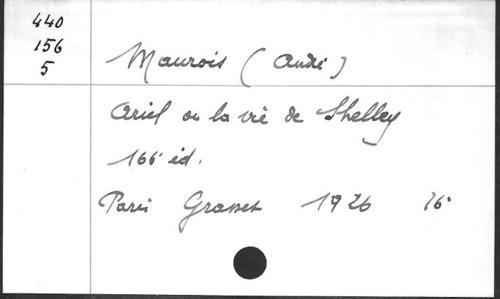 440
156
5
Maurois (André)
Ariel ou la vie de Shelley
166 éd.
Paris Grasset 1926 16°